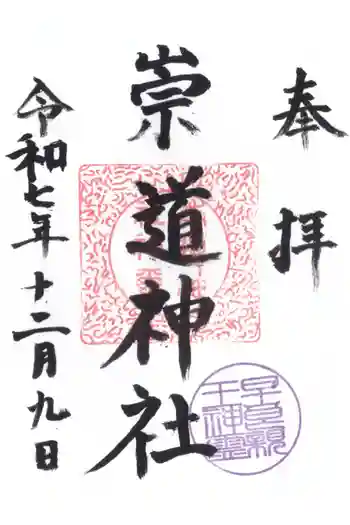 奉拝
崇道神社
早良親王神霊
令和七年十二月九日